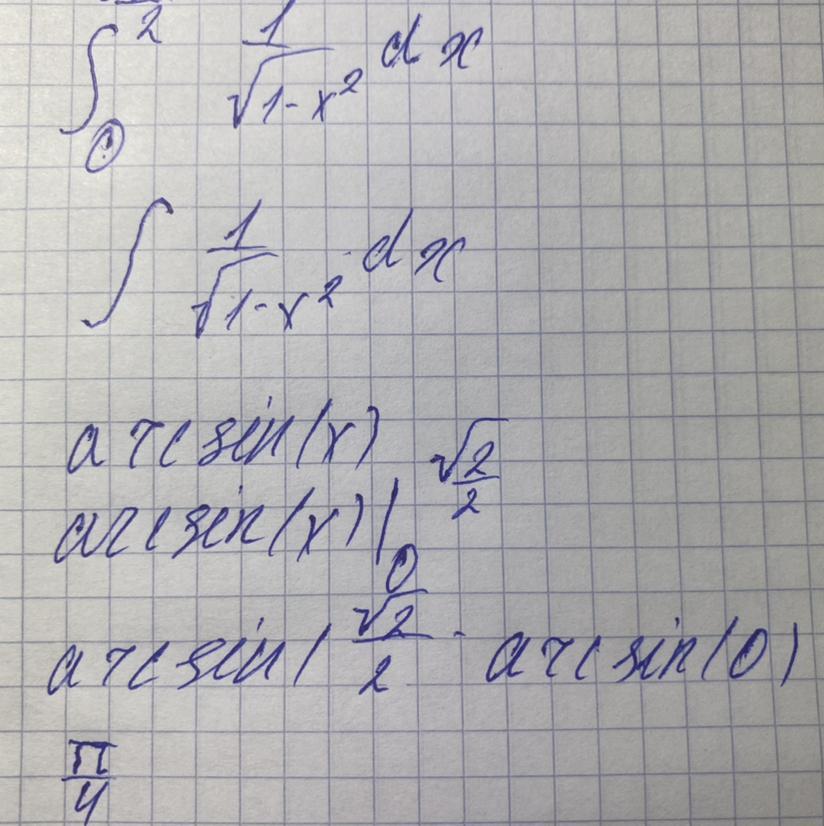 ∫₀ 2 1/√(1-x²) dx
∫ 1/√(1-x²) dx
arcsin(x)
arcsin(x)|₀ √2/2
arcsin(√2/2 - arcsin(0)
π/4